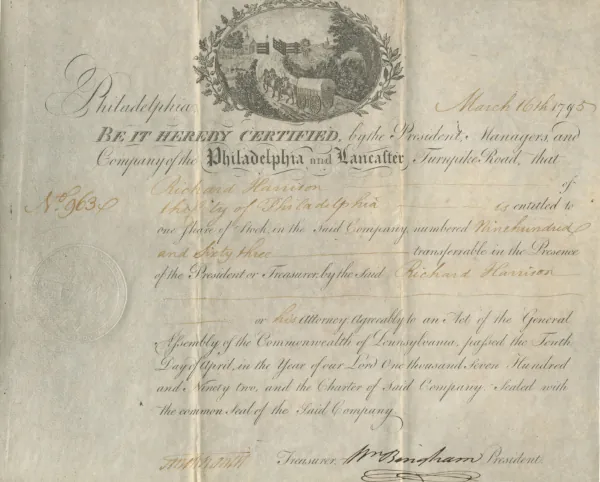 Philadelphia March 16th 1795
BE IT HEREBY CERTIFIED, by the President, Managers, and
Company of the Philadelphia and Lancaster Turnpike Road, that
Richard Harrison of
No. 963 the City of Philadelphia is entitled to
one Share of Stock in the Said Company, numbered Ninehundred
and Sixty three transferrable in the Presence
of the President or Treasurer, by the Said Richard Harrison
or his Attorney Agreeably to an Act of the General
Assembly of the Commonwealth of Pennsylvania, passed the Tenth
Day of April, in the Year of our Lord One thousand Seven Hundred
and Ninety two, and the Charter of Said Company Sealed with
the common Seal of the Said Company
Treasurer. Wm Bingham President.